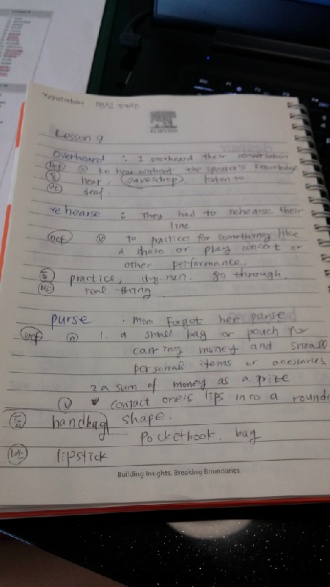 ELSEVIER
Lesson 9
overheard : I overheard their conversation
def ⓥ to hear without the speaker's knowledge
hear, eavesdrop, listen to
deaf.
rehearse : They had to rehearse their
line
def ⓥ to practice for something like
a show or play concert or
other performance.
practice, dry-run. go through.
real thing.
purse : Mom forgot her purse
def ⓝ 1. a small bag or pouch for
carring money and small
personal items or
2 a sum of money as a prize
ⓥ contact one's lips into a round
handbag shape.
pocketbook. bag
lipstick
Building Insights. Breaking Boundaries.